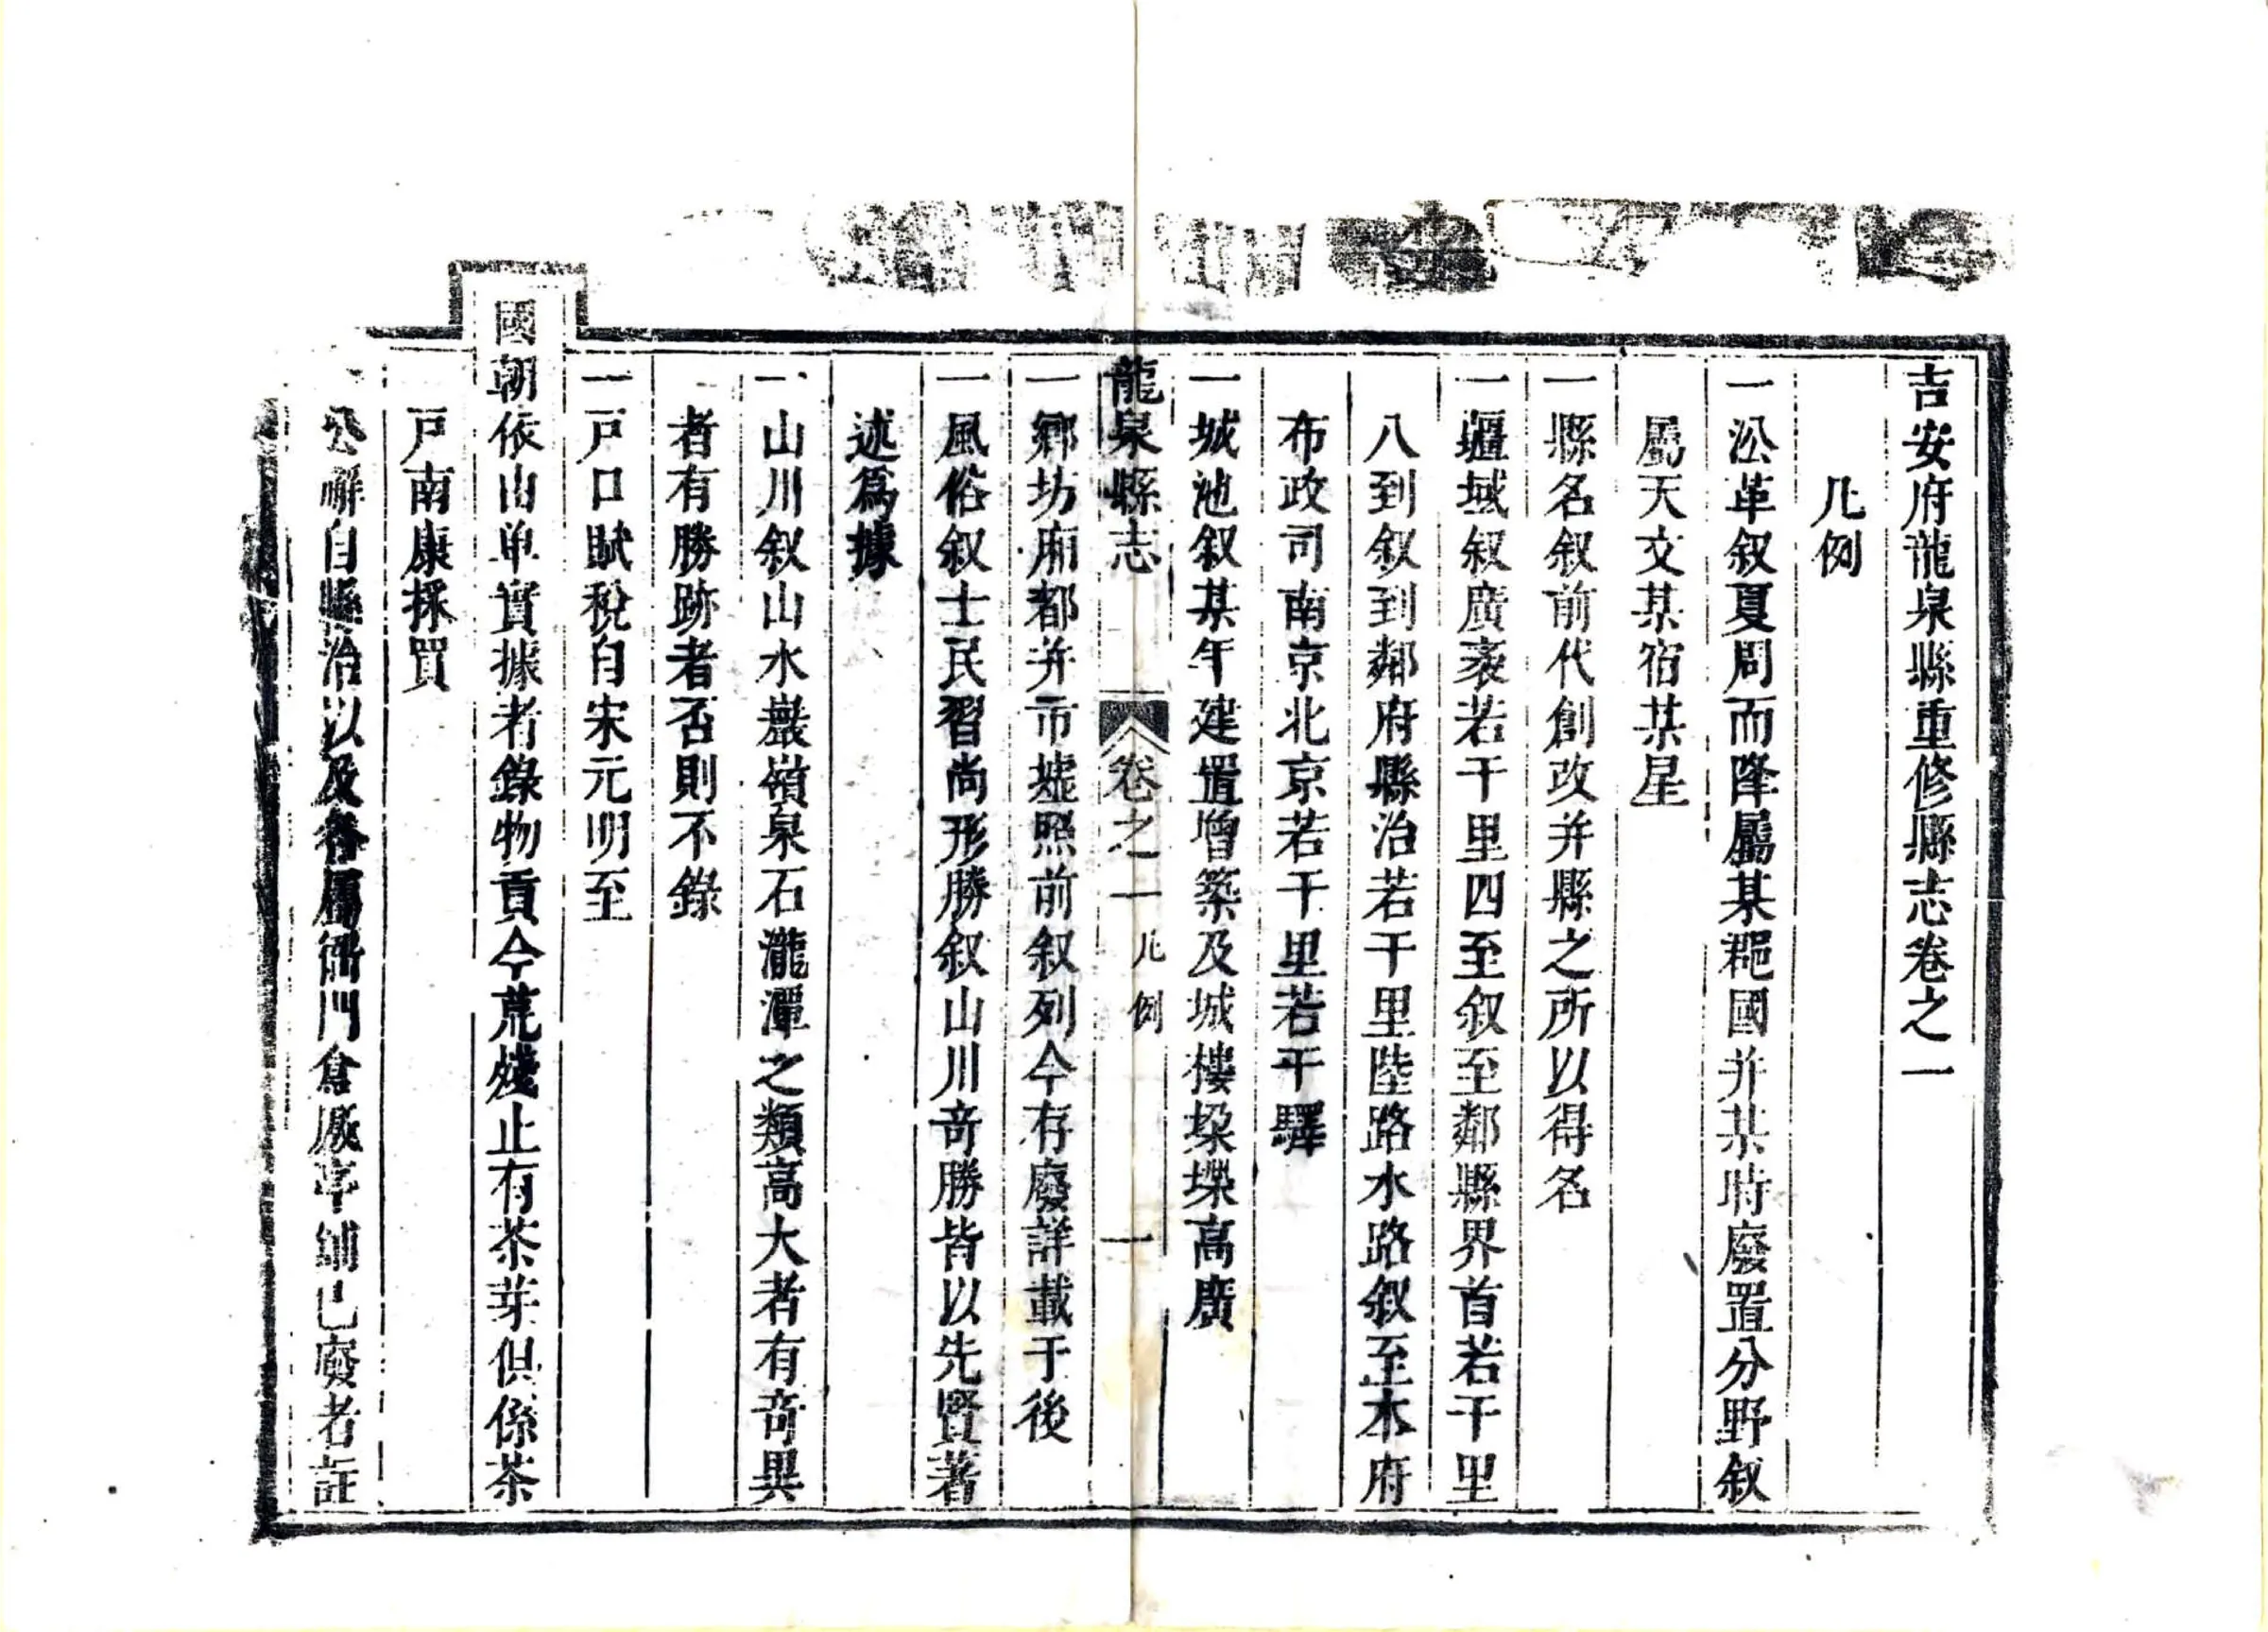 吉安府龍泉縣重修縣志卷之一
凡例
一沿革叙夏周而降屬某郡國并某時廢置分野叙
屬天文某宿某星
一縣名叙前代創改并縣之所以得名
一疆域叙廣袤若干里四至叙至鄰縣界首若干里
八到叙到鄰府縣治若干里陸路水路叙至本府
布政司南京北京若干里若干驛
一城池叙某年建置增築及城樓垜堞高廣
龍泉縣志 卷之一 凡例 一
一鄉坊廂都并市墟照前叙列今存廢詳載于後
一風俗叙士民習尚形勝叙山川竒勝皆以先賢著
述爲據
一山川叙山水巖嶺泉石瀧潭之類高大者有竒異
者有勝跡者否則不錄
一戸口賦稅自宋元明至
國朝依由单實據者錄物貢今荒殘止有茶芽俱係茶
戸南康採買
公廨自縣治以及各屬衙門倉厫亭鋪已廢者註